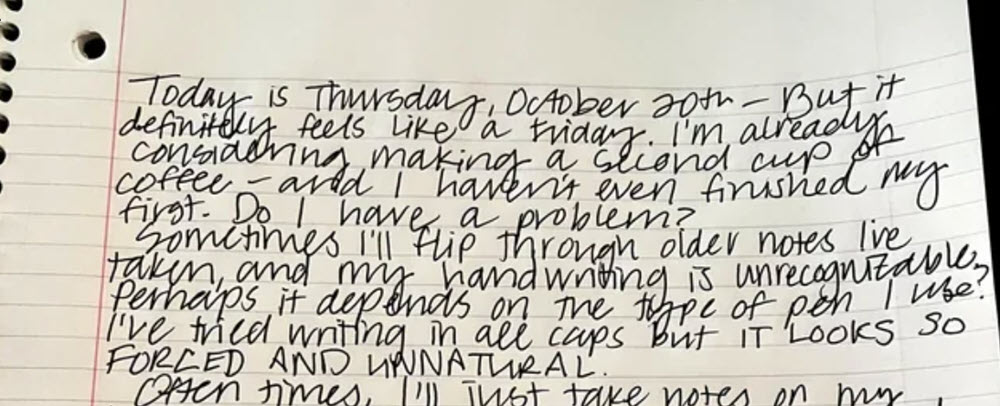 Today is Thursday, October 20th - But it
definitely feels like a Friday. I'm already
considering making a second cup of
coffee - and I haven't even finished my
first. Do I have a problem?
Sometimes I'll flip through older notes I've
taken, and my handwriting is unrecognizable.
Perhaps it depends on the type of pen I use?
I've tried writing in all caps but IT LOOKS SO
FORCED AND UNNATURAL.
Often times, I'll just take notes on my